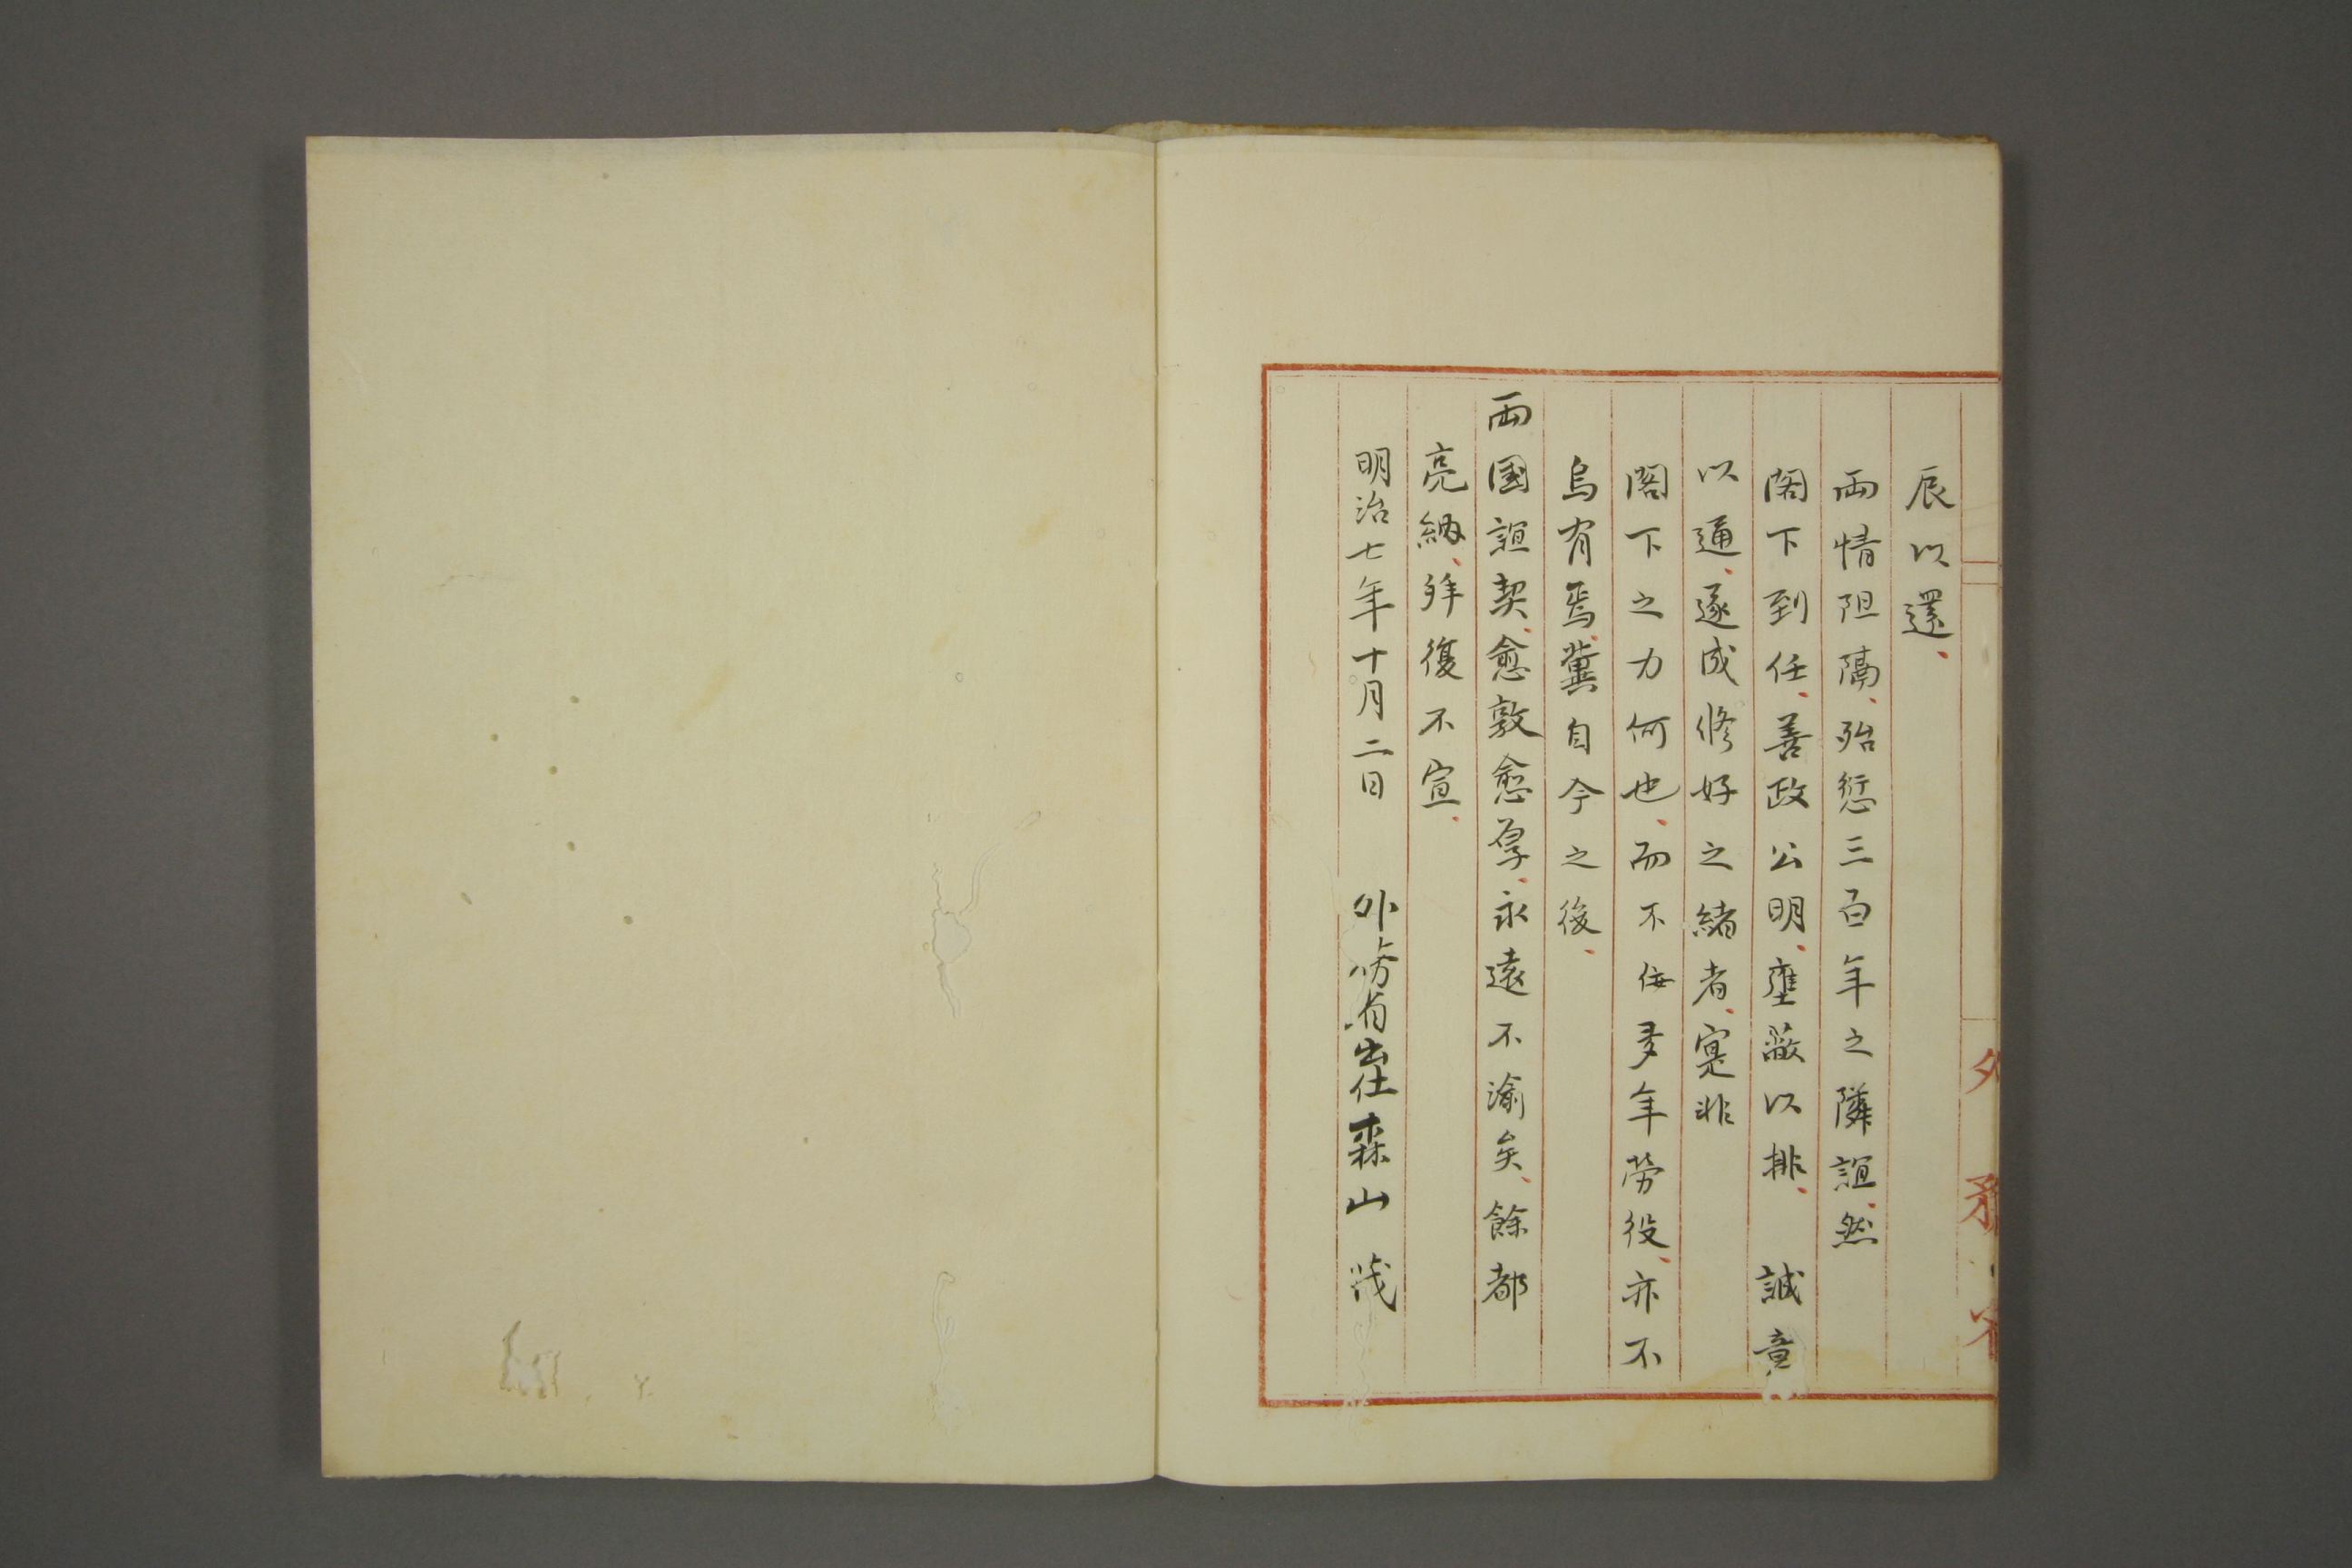 辰以還、
両情阻隔、殆愆三百年之隣誼、然
閣下到任、善政公明、壅蔽以排、誠意
以通、遂成修好之緒者、寔非
閣下之力何也、而不佞多年労役、亦不
烏有焉、冀自今之後、
両国誼契、愈敦愈厚、永遠不渝矣、餘都
亮納、拝復不宣、
明治七年十月二日　外務省出仕森山茂
外務省